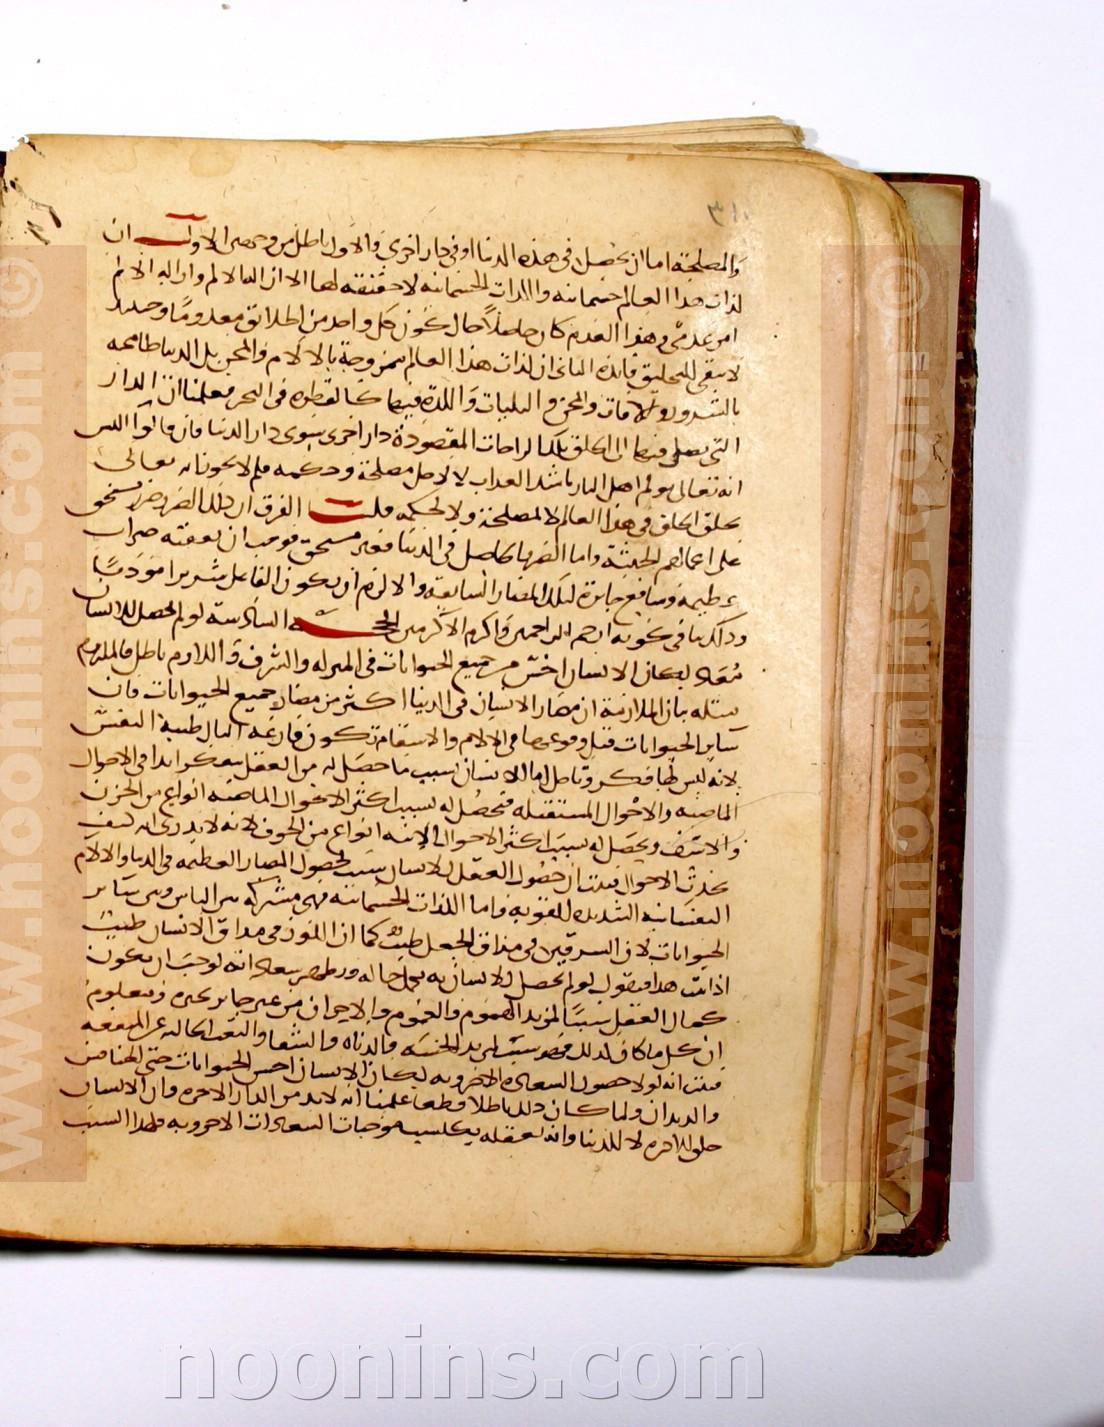 ٣١٠
والمصلحة اما ان يحصل في هذه الدنيا او في دار اخرى والاول باطل من وجهين الاول ان
لذات هذا العالم جسمانية واللذات الجسمانية لا حقيقة لها الا ازالة الالم وازالة الالم
امر عدمي وهذا العدم كان حاصلا حال كون كل واحد من الخلائق معدوما وحينئذ
لا يبقى للتخليق فائدة الثاني ان لذات هذا العالم ممزوجة بالالام والمحن بل الدنيا طافحة
بالشرور والافات والمحن والبليات واللذة فيها كالقطرة في البحر فعلمنا ان الدار
التي يصل فيها الخلق الى تلك الراحات المقصودة دار اخرى سوى دار الدنيا فان قالوا اليس
انه تعالى يولم اهل النار باشد العذاب لا لاجل مصلحة وحكمة فلم لا يجوز انه تعالى
يخلق الخلق في هذا العالم لا لمصلحة ولا لحكمة قلت الفرق ان ذلك الضرر ضرر مستحق
على اعمالهم الخبيثة واما الضرر الحاصل في الدنيا فغير مستحق فوجب ان يعقبه خيرات
عظيمة ومنافع جابرة لتلك المضار السابقة والا لزم ان يكون الفاعل شريرا موذيا
وذلك ينافي كونه ارحم الراحمين واكرم الاكرمين الحجة السادسة لو لم يحصل للانسان
معاد لكان الانسان اخس من جميع الحيوانات في المنزلة والشرف واللازم باطل فالملزوم
مثله بيان الملازمة ان مضار الانسان في الدنيا اكثر من مضار جميع الحيوانات فان
سائر الحيوانات قبل وقوعها في الالام والاسقام تكون فارغة البال طيبة النفس
لانه ليس لها فكر وتامل اما الانسان بسبب ما حصل له من العقل يتفكر ابدا في الاحوال
الماضية والاحوال المستقبلة فيحصل له بسبب اكثر الاحوال الماضية انواع من الحزن
والاسف ويحصل له بسبب اكثر الاحوال الاتية انواع من الخوف لانه لا يدري انه كيف
يحدث الاحوال فثبت ان حصول العقل للانسان سبب لحصول المضار العظيمة في الدنيا والالام
النفسانية الشديدة القوية واما اللذات الجسمانية فهي مشتركة بين الناس وبين سائر
الحيوانات لان السرقين في مذاق الجعل طيب كما ان اللوز في مذاق الانسان طيب
اذا ثبت هذا فنقول لو لم يحصل للانسان به يكمل حاله ويظهر سعادته لوجب ان يكون
كمال العقل سببا لمزيد الهموم والغموم والاحزان من غير جابر يجبره ومعلوم
ان كل ما كان كذلك فهو سبب لمزيد الخسة والدناءة والشقاء والتعب الخالية عن المنفعة
فثبت انه لولا حصول السعادة الاخروية لكان الانسان اخس الحيوانات حتى الخنافس
والديدان ولما كان ذلك باطلا قطعا علمنا انه لا بد من الدار الاخرة وان الانسان
خلق للاخرة لا للدنيا وانه بعقله يكتسب موجبات السعادات الاخروية فلهذا السبب
www.noonins.com ©
www.noonins.com ©
noonins.com